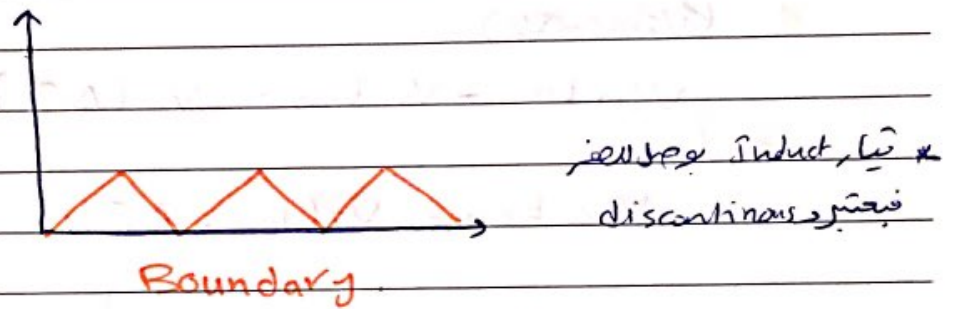 * تيار Induct بوصل للصفر
فبعتبره discontinous
Boundary.